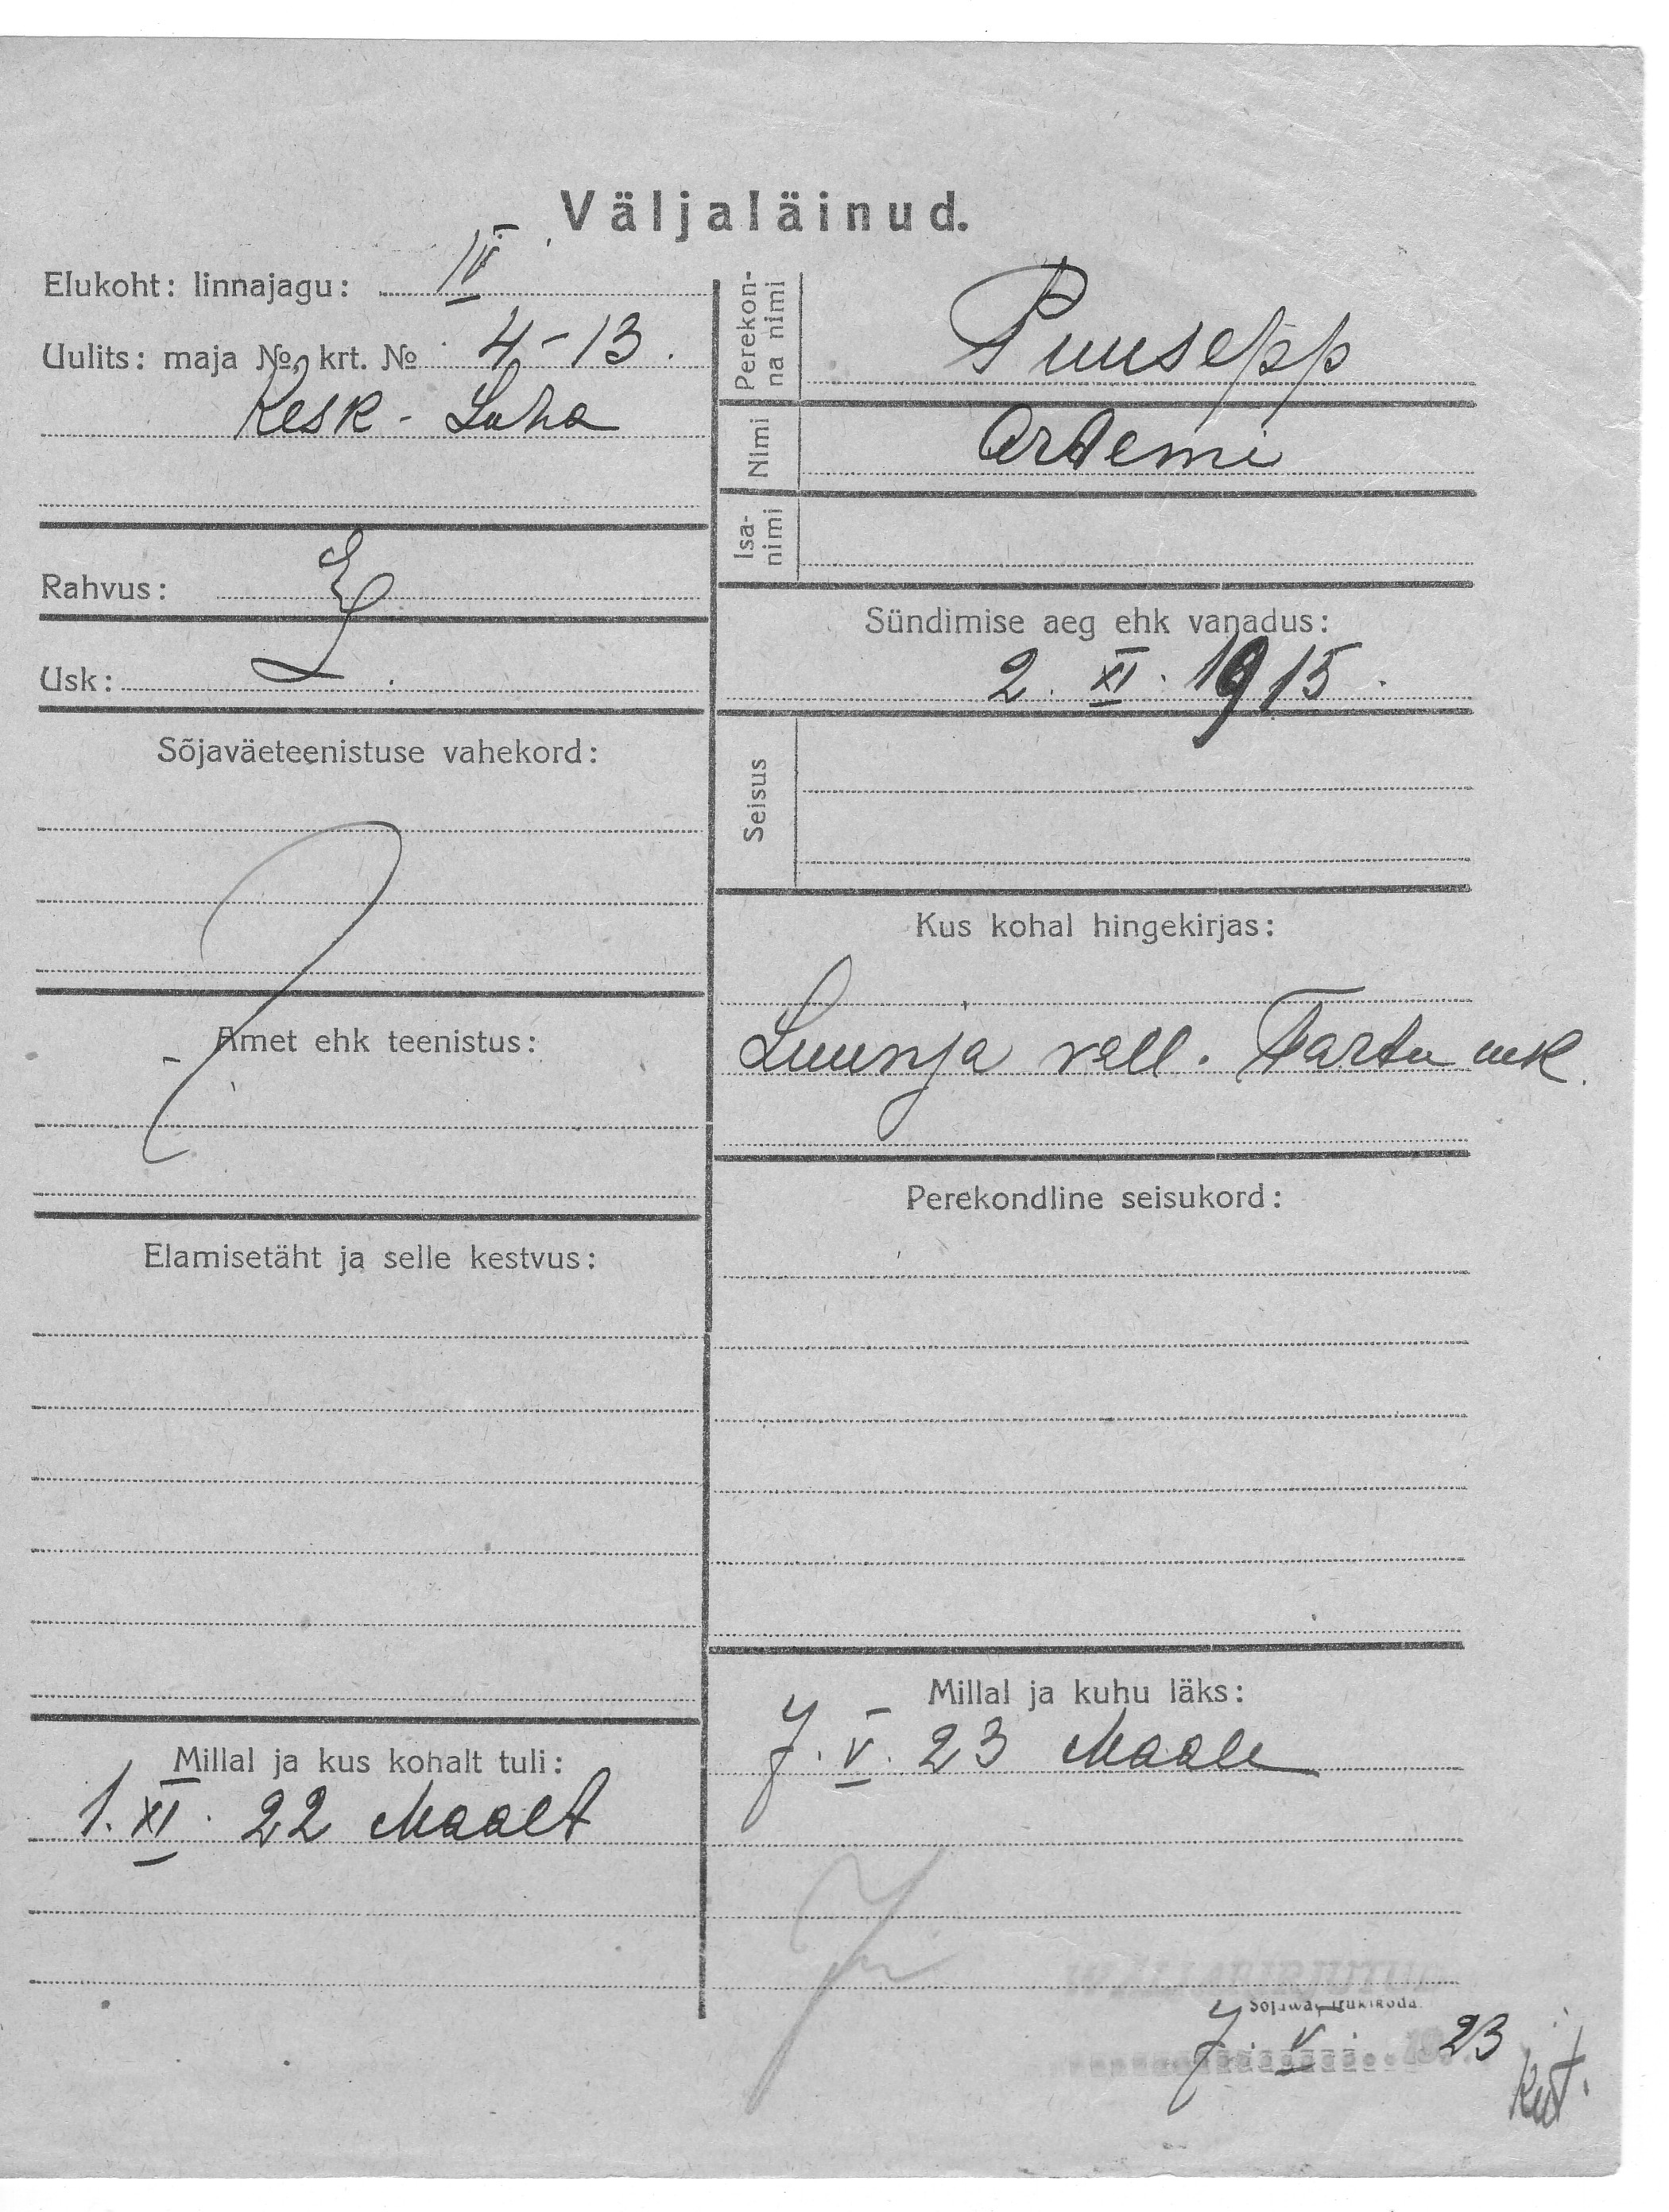 Väljaläinud.
Elukoht: linnajagu: IV
Uulits: maja №, krt. № 4-13.
Kesk-Laha
Rahvus: E
Usk: L.
Sõjaväeteenistuse vahekord:
Amet ehk teenistus:
Elamisetäht ja selle kestvus:
Millal ja kus kohalt tuli:
1. XI. 22 Maalt
Perekonna nimi Puusepp
Nimi Artemi
Isanimi
Sündimise aeg ehk vanadus:
2. XI. 1915.
Seisus
Kus kohal hingekirjas:
Luunja vall. Tartu mk.
Perekondline seisukord:
Millal ja kuhu läks:
7. V. 23 Maale
7. V. 23